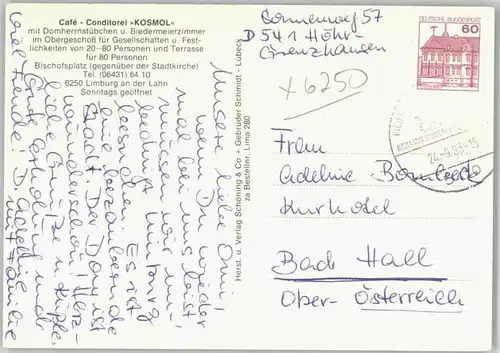 Café - Conditorei »KOSMOL«
mit Domherrnstübchen u. Biedermeierzimmer
im Obergeschoß für Gesellschaften u. Fest-
lichkeiten von 20-80 Personen und Terrasse
für 80 Personen
Bischofsplatz (gegenüber der Stadtkirche)
Tel. (06431) 64 10
6250 Limburg an der Lahn
Sonntags geöffnet
Meine liebe Omi,
wenn Du wieder
mal bei uns bist,
müssen wir un-
bedingt Limburg
besuchen. Es ist
eine bezaubernde
Stadt. Der Dom ist
wunderschön! Herz-
liche Grüße u. Küße.
Gute Erholung und
viel Freude! D. Adeline
mit Familie
Herst. u. Verlag Schöning & Co + Gebrüder Schmidt - Lübeck
za Bestellnr. Lima 280
Sonnenweg 57
D 541 Höhr
Grenzhausen
x 6250
DEUTSCHE BUNDESPOST
60
24.-9.89-15
Frau
Adeline
Kurhotel
Bad Hall
Ober-Österreich